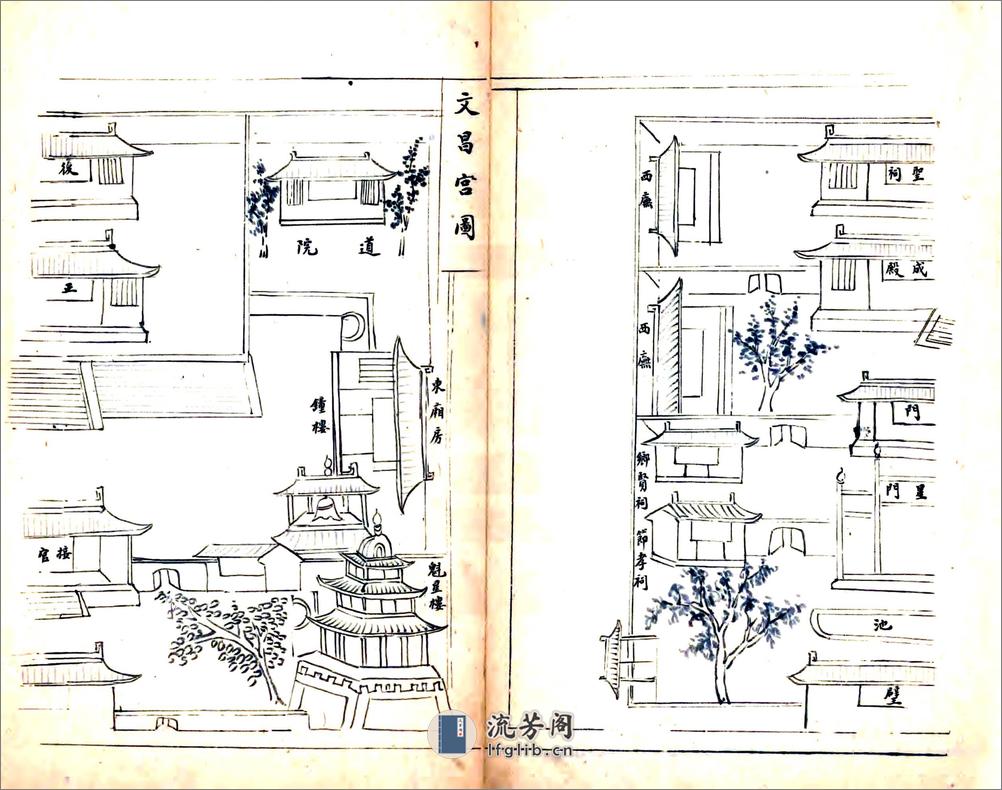 聖祠
西廡
成殿
西廡
門
鄉賢祠
星門
節孝祠
池
壁
文昌宮圖
後
道院
正
東廂房
鐘樓
官樓
魁星樓
流芳阁
lfglib.cn